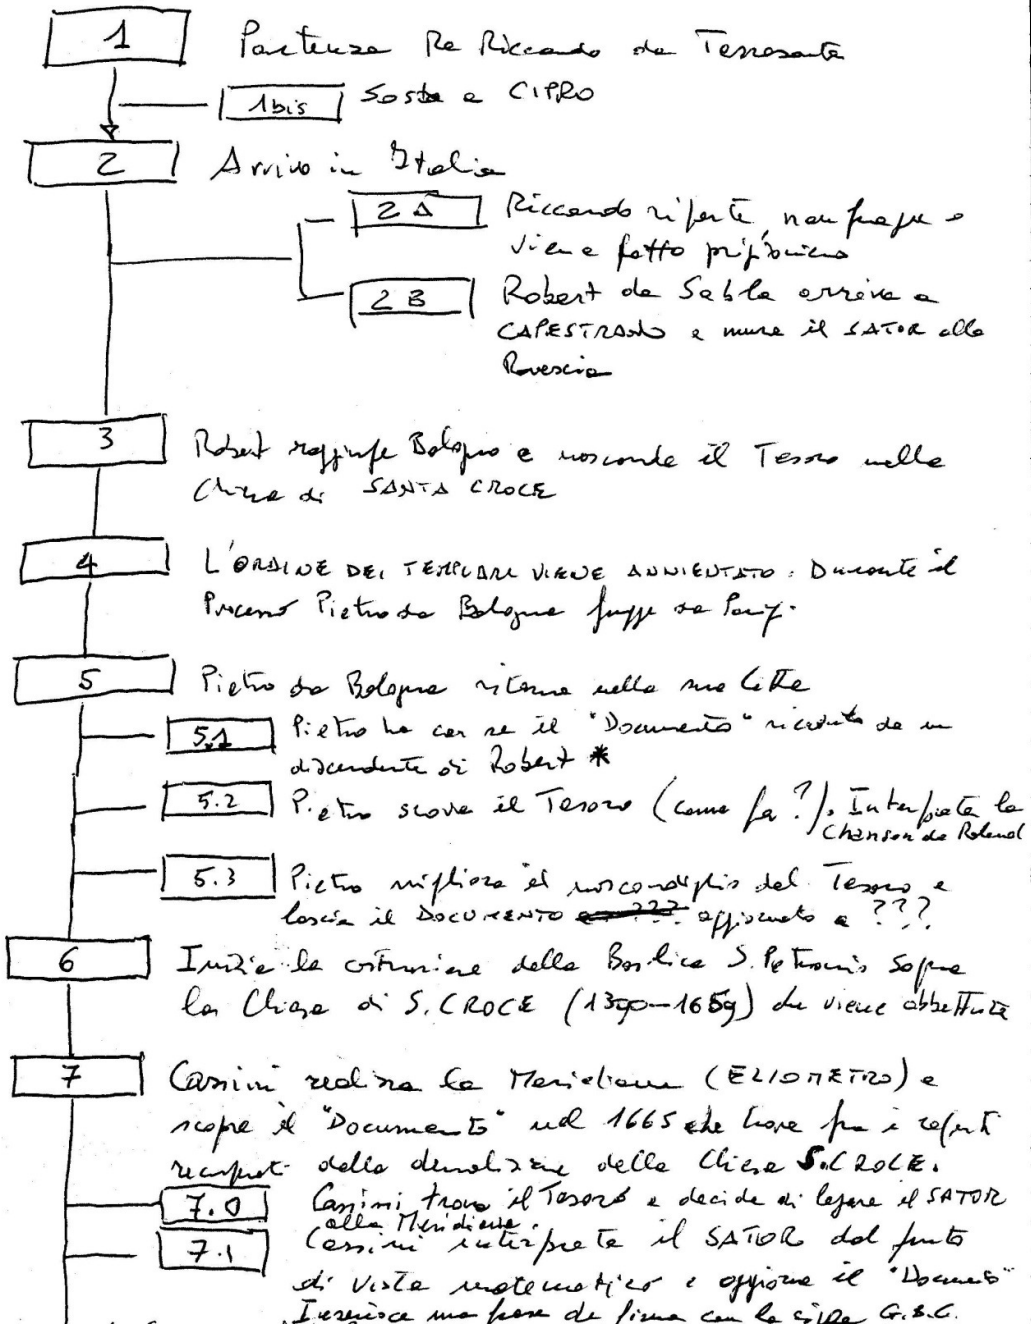 1 Partenza Re Riccardo da Terrasanta
1bis Sosta a CIPRO
2 Arrivo in Italia
2A Riccardo riparte, naufraga e
viene fatto prigioniero
2B Robert de Sablé arriva a
CAPESTRANO e mura il SATOR alla
Rovescia
3 Robert raggiunge Bologna e nasconde il Tesoro nella
Chiesa di SANTA CROCE
4 L'ORDINE DEI TEMPLARI VIENE ANNIENTATO. Durante il
Processo Pietro da Bologna fugge da Parigi.
5 Pietro da Bologna ritorna nella sua Città
5.1 Pietro ha con se il "Documento" ricevuto da un
discendente di Robert *
5.2 Pietro scova il Tesoro (come fa?). Interpreta la
Chanson de Roland
5.3 Pietro migliora il nascondiglio del Tesoro e
lascia il DOCUMENTO aggiornato a ???
6 Inizia la costruzione della Basilica S. Petronio sopra
la Chiesa di S. CROCE (1390-1659) che viene abbattuta
7 Cassini realizza la Meridiana (ELIOMETRO) e
scopre il "Documento" nel 1665 che trova fra i reperti
recuperati dalla demolizione della Chiesa S. CROCE.
7.0 Cassini trova il Tesoro e decide di legare il SATOR
alla Meridiana.
7.1 Cassini interpreta il SATOR dal punto
di vista matematico e aggiorna il "Documento"
Inserisce una frase da firma con la sigla G.B.C.